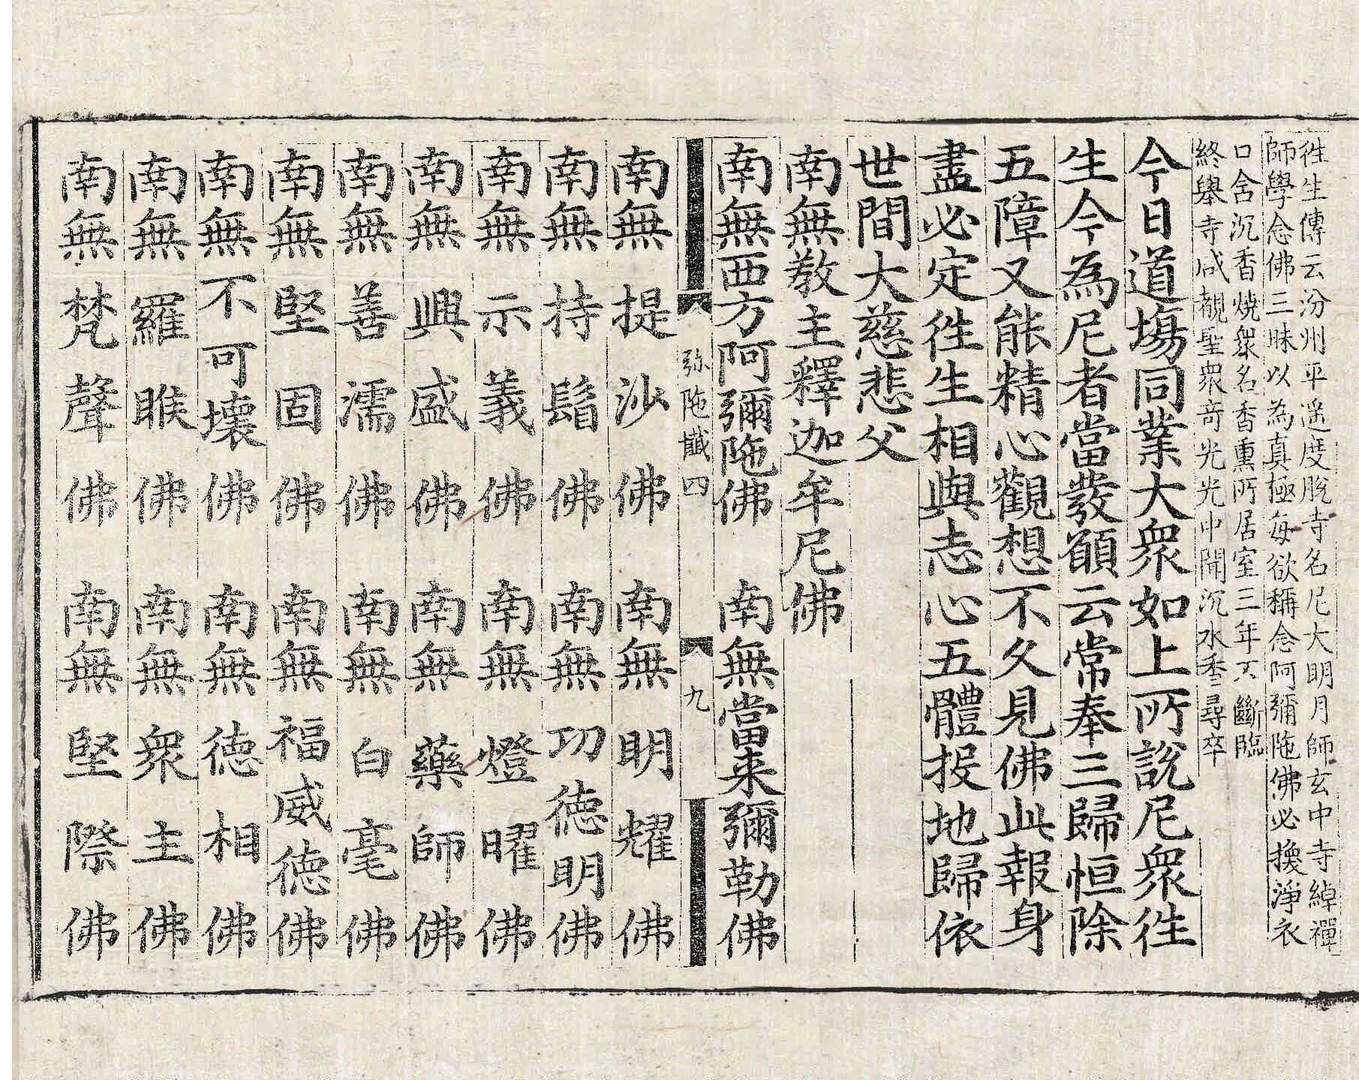 徃生傳云汾州平遥度脫寺名尼大明月師玄中寺綽禪
師學念佛三昧以為真極每欲稱念阿彌陁佛必換淨衣
口含沉香燒衆名香熏所居室三年不斷臨
終舉寺咸覩聖衆奇光光中聞沉水香尋卒
今日道場同業大衆如上所說尼衆徃
生今為尼者當發願云常奉三歸恒除
五障又能精心觀想不久見佛此報身
盡必定徃生相與志心五體投地歸依
世間大慈悲父
南無教主釋迦牟尼佛
南無西方阿彌陁佛 南無當来彌勒佛
弥陁懺四 九
南無提沙佛 南無明耀佛
南無持鬘佛 南無功德明佛
南無示義佛 南無燈曜佛
南無興盛佛 南無藥師佛
南無善濡佛 南無白毫佛
南無堅固佛 南無福威德佛
南無不可壞佛 南無德相佛
南無羅睺佛 南無衆主佛
南無梵聲佛 南無堅際佛